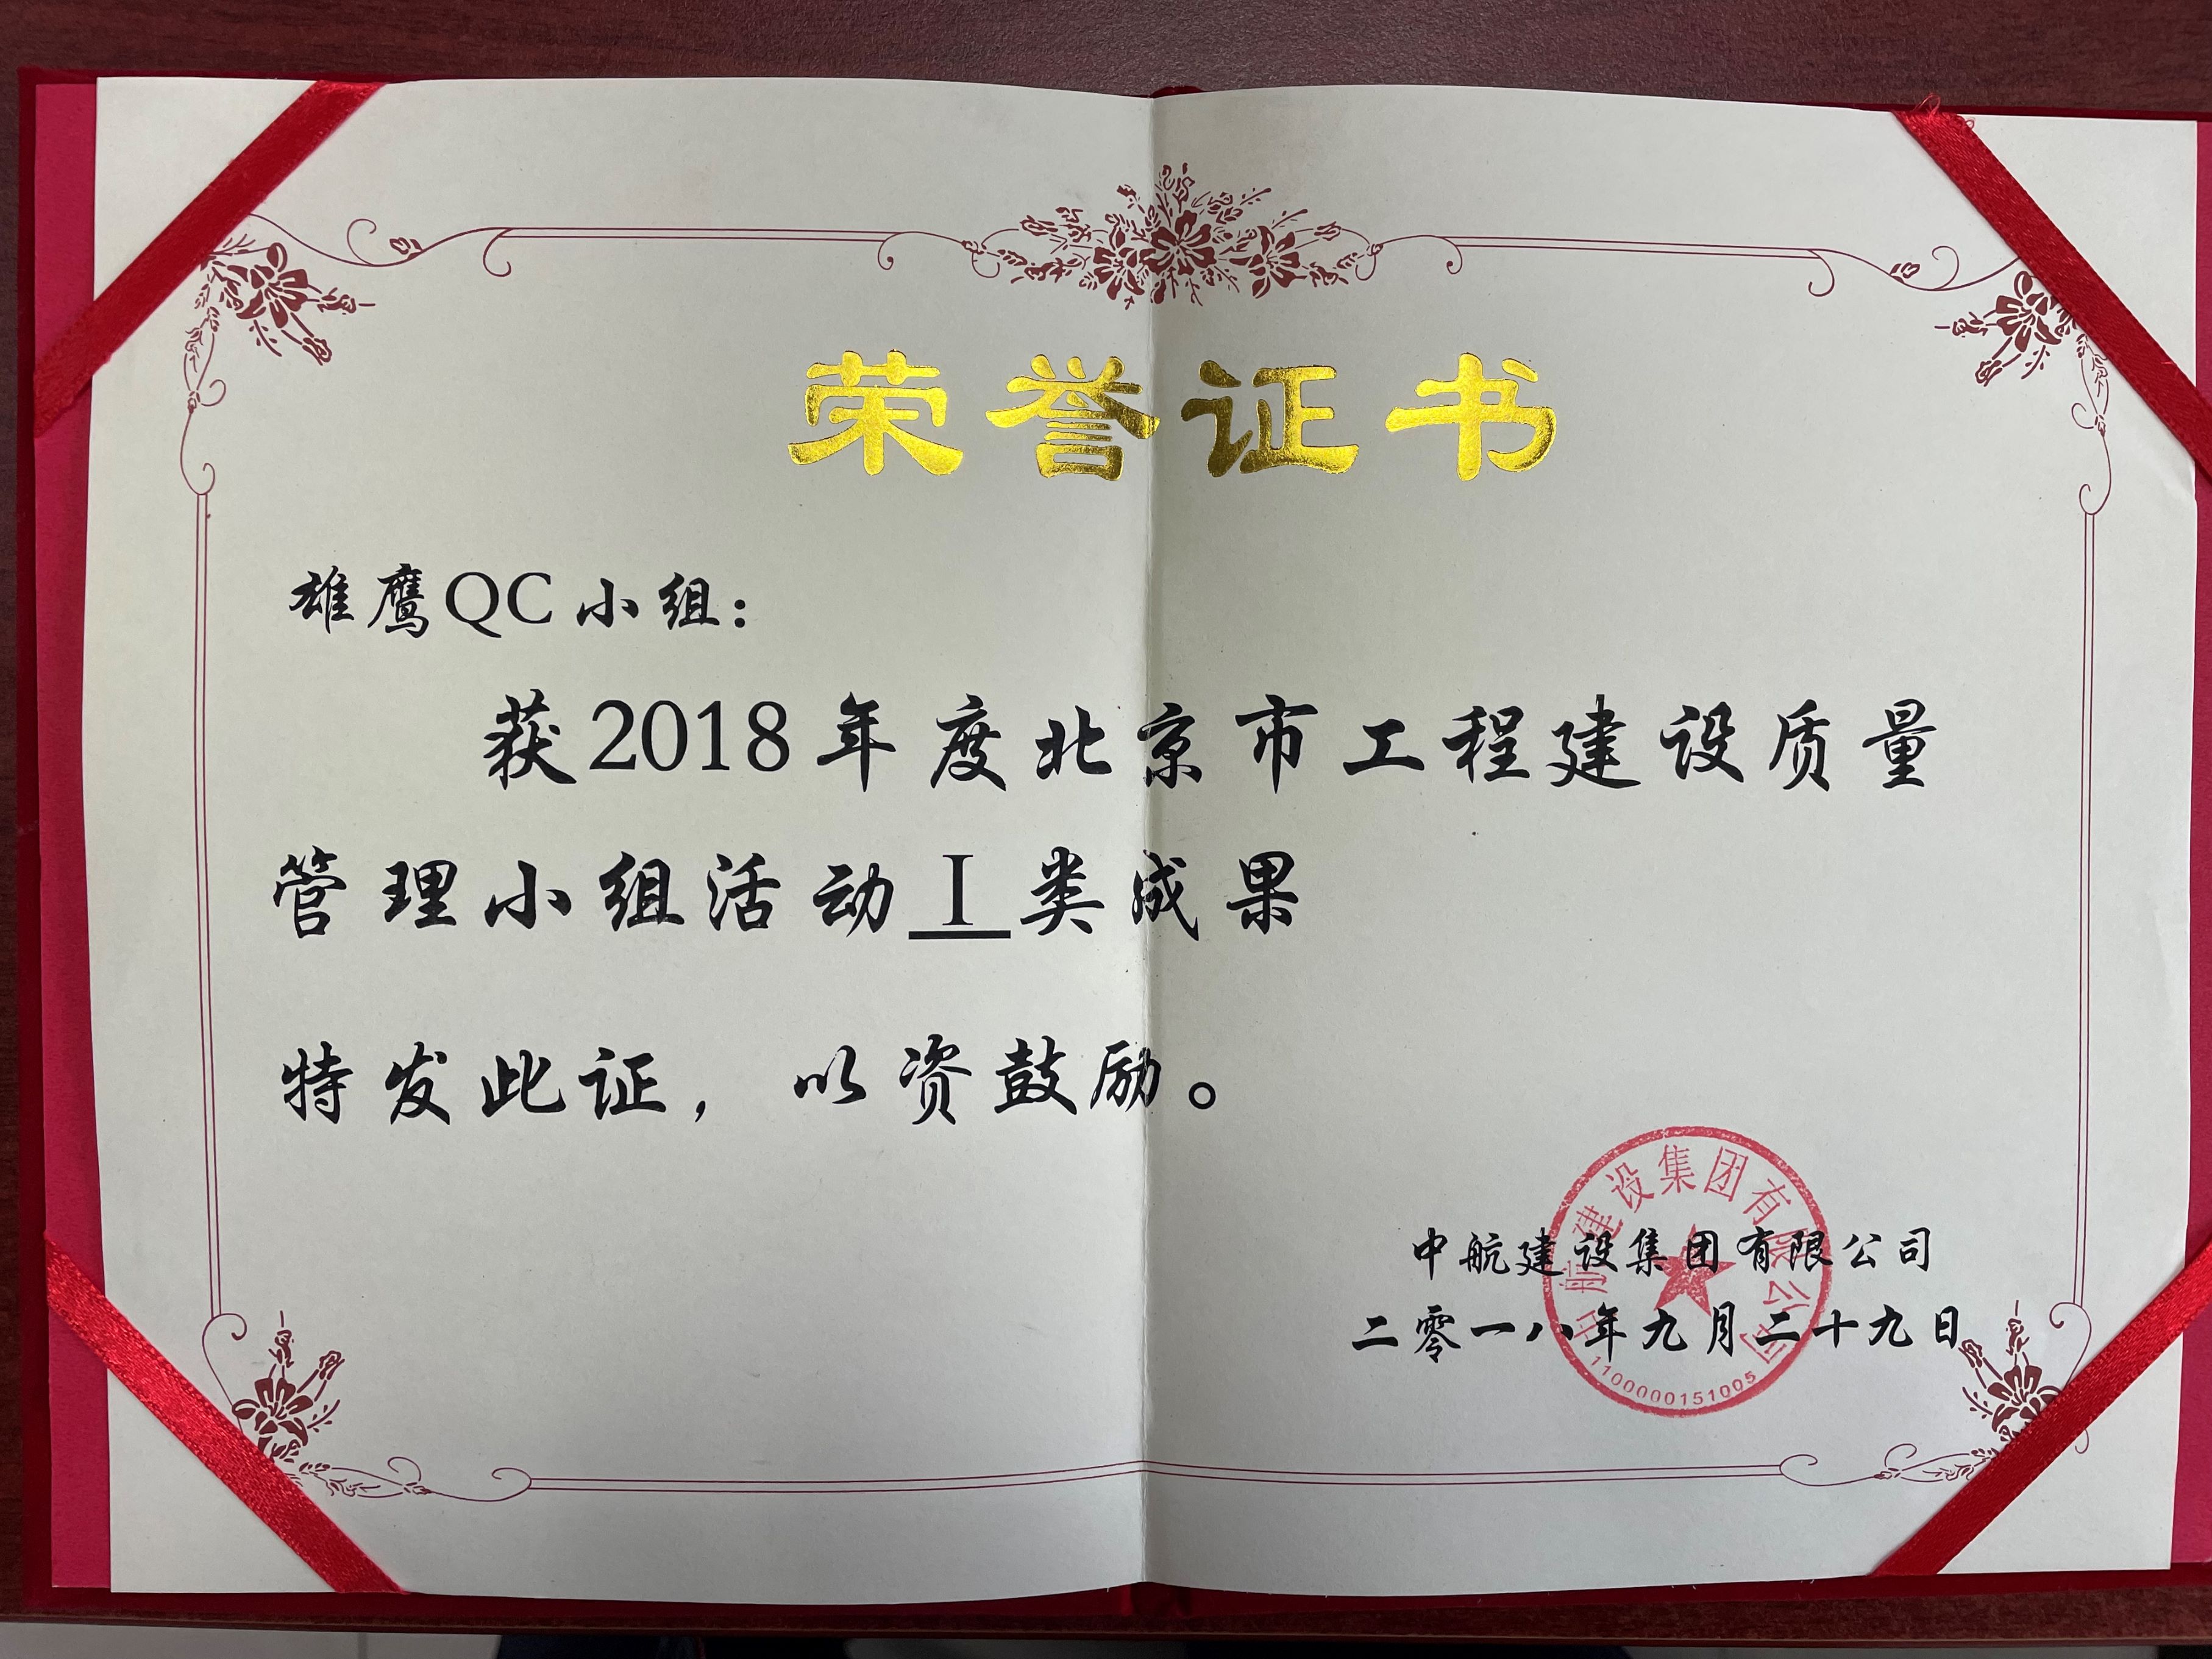 荣誉证书
雄鹰QC小组：
获2018年度北京市工程建设质量
管理小组活动 I 类成果
特发此证，以资鼓励。
中航建设集团有限公司
二零一八年九月二十九日
中航建设集团有限公司
1100000151005